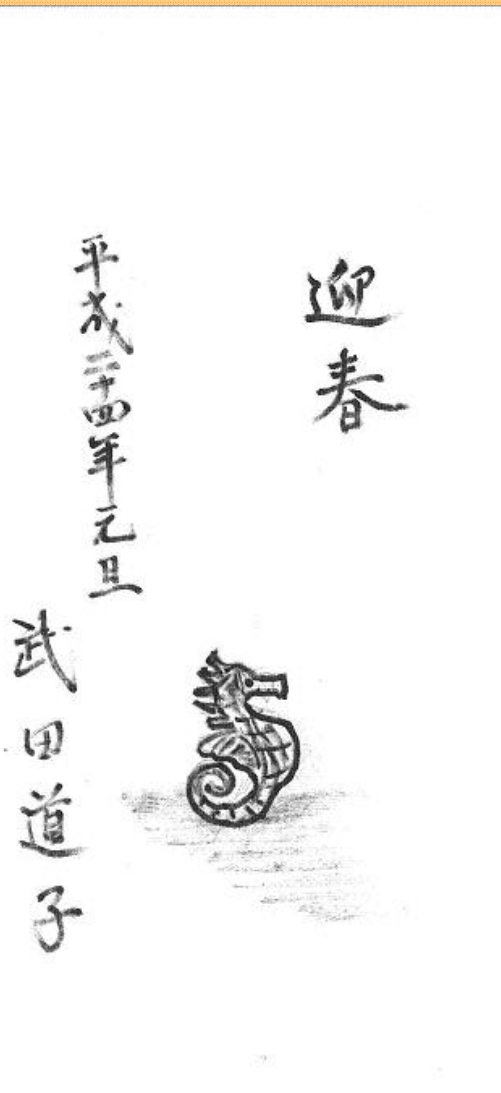 迎春
平成二十四年元旦
武田道子